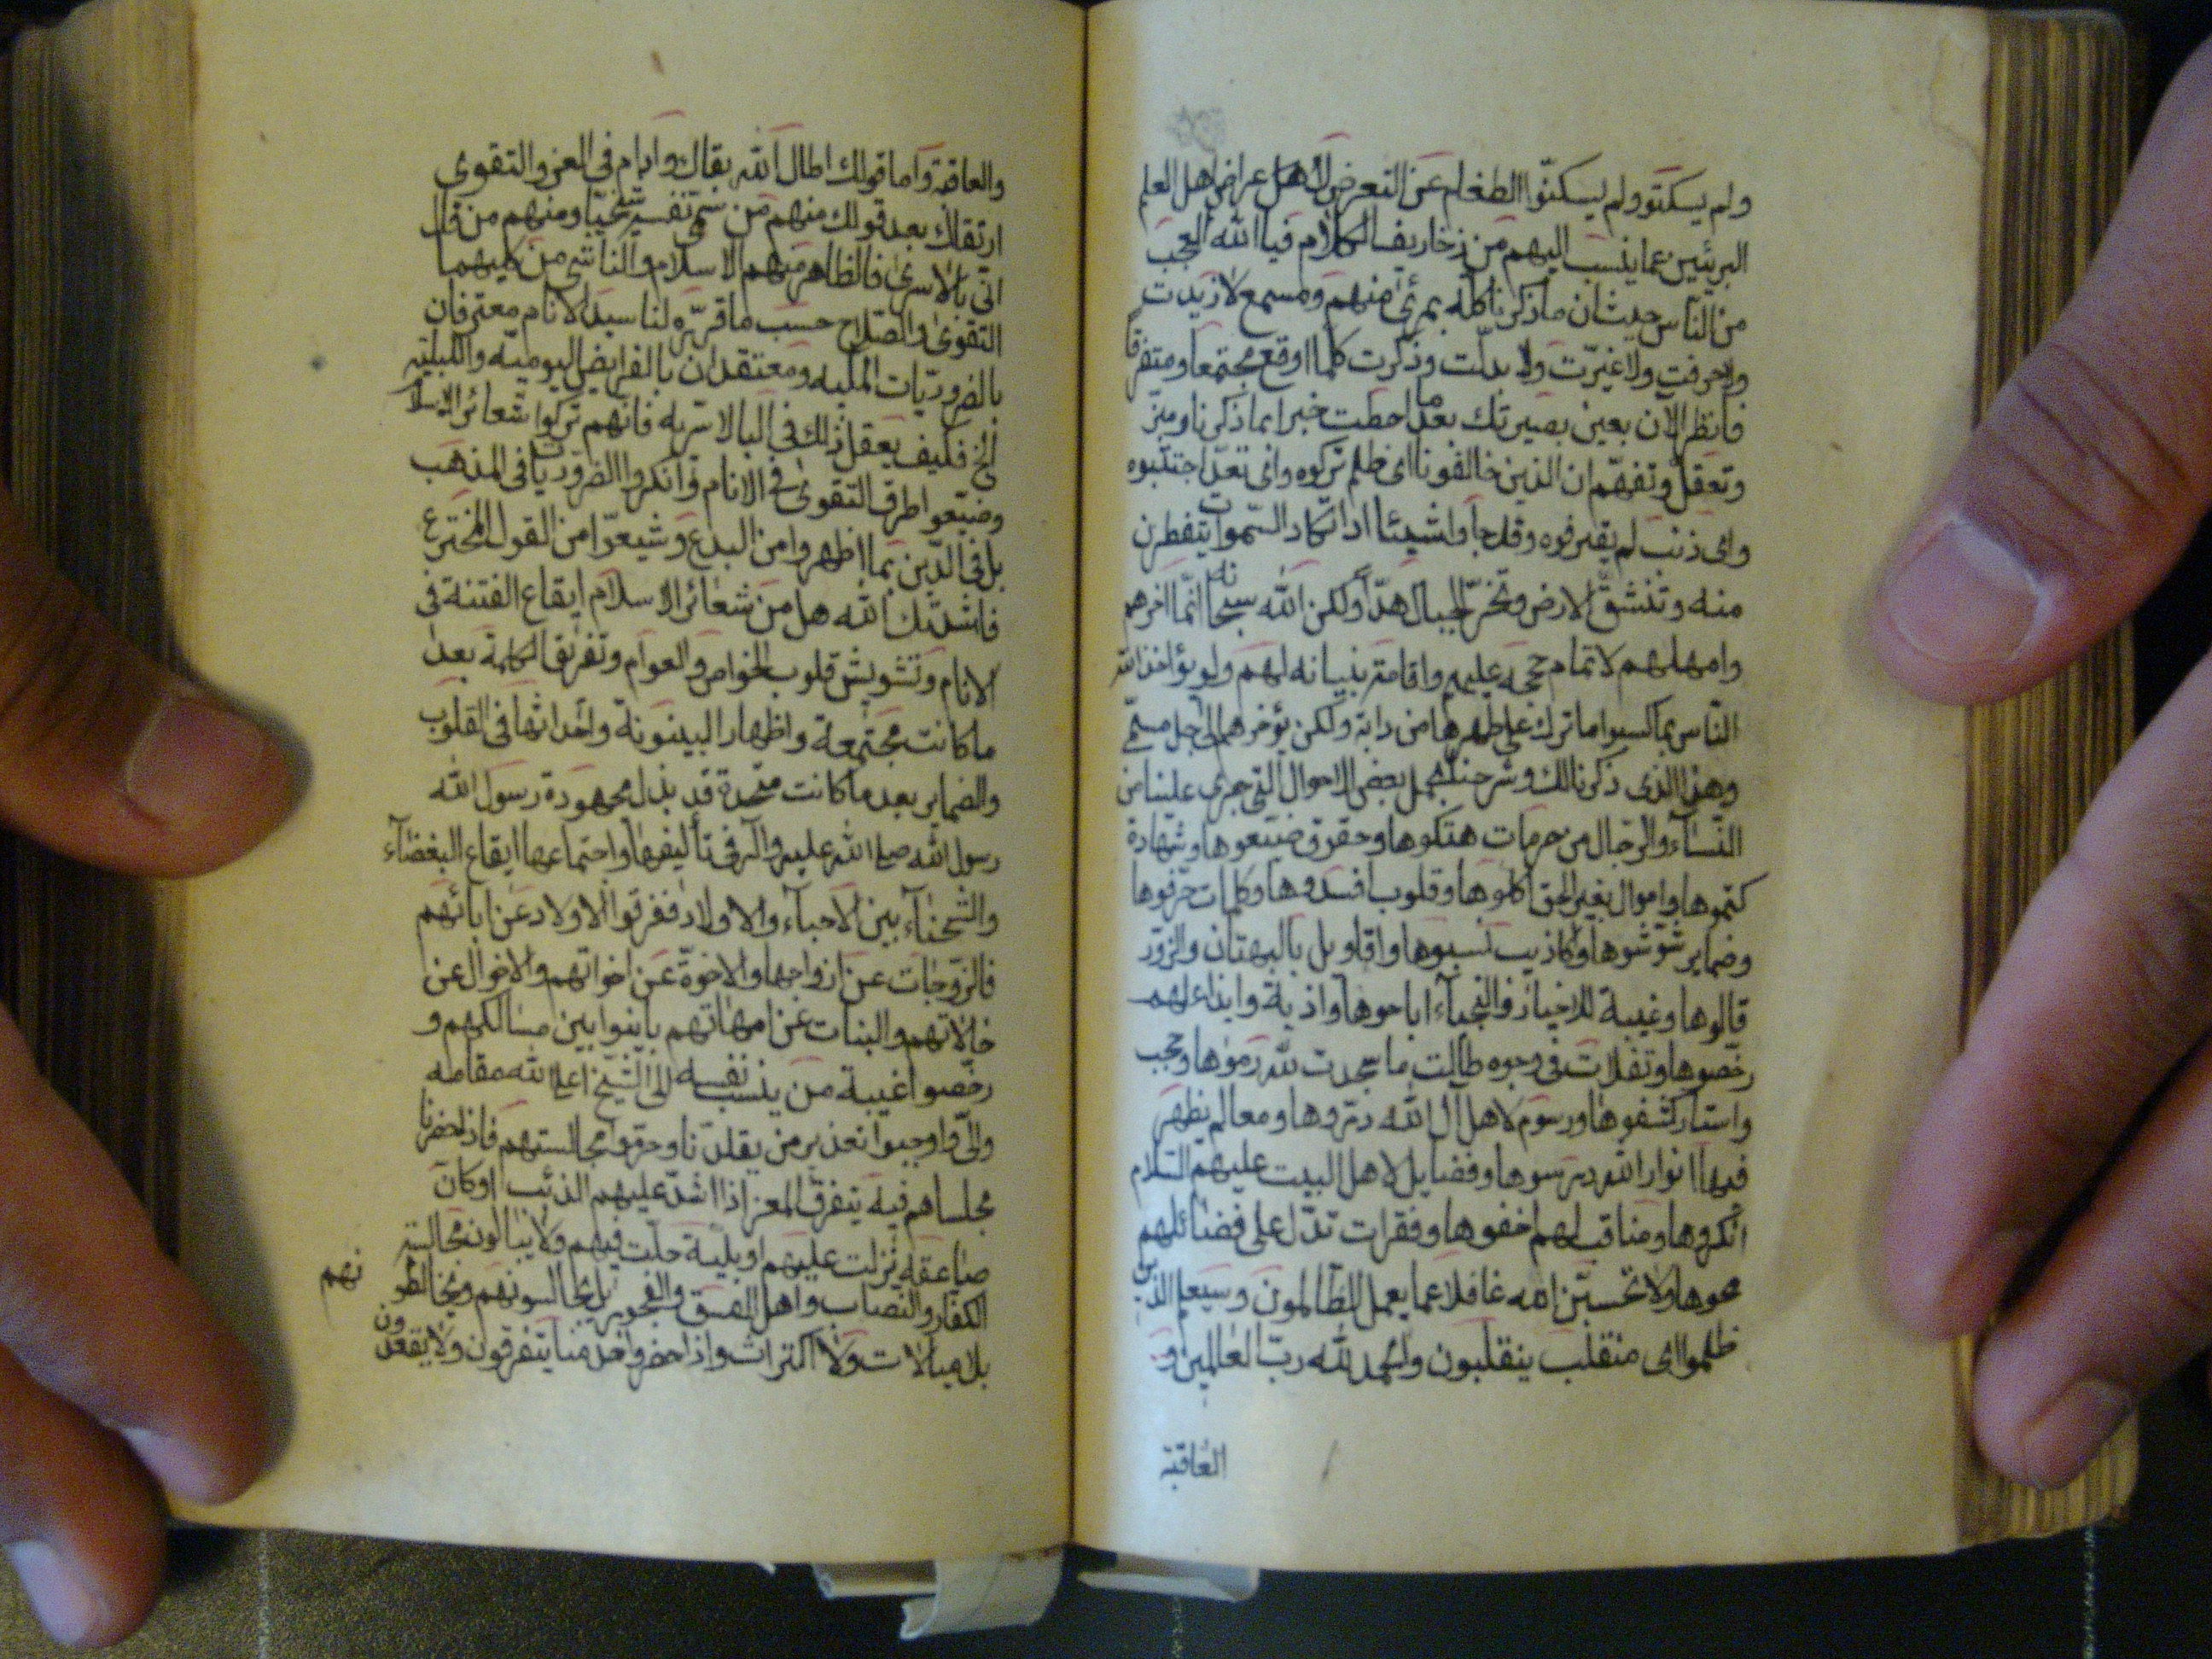 ولم يسكتو ولم يسكتوا الطغام عن التعرض لأهل عراض اهل العلم
البريئين عما ينسب اليهم من زخاريف الكلام فيا الله العجب
من الناس حيث ان ما ذكرنا كله بمرئى منهم ومسمع لا زيدت
ولا حرفت ولا غيّرت ولا بدلت وذكرت كلما اوقع مجتمعا ومتفرقا
فانظر الآن بعين بصيرتك بعد ما احطت خبرا بما ذكرنا وميّز
وتعقل وتفهّم ان الذين خالفونا اى ظلم تركوه واى تعدّ اجتنبوه
واى ذنب لم يقترفوه وقد جاوا شيئا ادا تكاد السموات يتفطرن
منه وتنشق الارض وتخرّ الجبال هدّا ولكن الله سبحانه انما اخرهم
وامهلهم لاتمام حججه عليهم واقامة بنيانه لهم ولو يؤاخذ الله
الناس بما كسبوا ما ترك على ظهرها من دابة ولكن يؤخرهم الى اجل مسمّى
وهذا الذى ذكرنا لك وشرحنا مجمل بعض الاحوال التى جرى علينا من
النسآء والرّجال من حرمات هتكوها وحقوق ضيّعوها وشهادة
كتموها واموال بغير الحق اكلوها وقلوب افسدوها وكلمات حرّفوها
وضماير شوّشوها واكاذيب نسبوها واقاويل بالبهتان والزّور
قالوها وغيبة للاخيار والنجبآء اباحوها واذية وايذاء لهم
رخّصوها وتفلات فى وجوه طالت ما سجدت لله رموها وحجب
واستار كشفوها ورسوم لاهل آل الله دثروها ومعالم يظهر
فيها انوار الله درسوها وفضايل لاهل البيت عليهم السّلام
انكروها ومناقب لهم اخفوها وفقرات تدلّ على فضائلهم
محوها ولا تحسبنّ الله غافلا عما يعمل الظالمون وسيعلم الذين
ظلموا اى منقلب ينقلبون والحمد لله ربّ العالمين و
العاقبة
والعاقبة واما قولك اطال الله بقاك وادام فى العز والتقوى
ارتقاك بعد قولك منهم من سمى نفسه شيخيّا ومنهم من قال
انّى بالاسرى فالظاهر منهم الاسلام والناشى من كليهما
التقوى والصّلاح حسب ما قرّره لنا سيد الانام معترفان
بالضروريّات الملّيه ومعتقدان بالفرايض اليوميّه والليليّه
الخ فكيف يعقل ذلك فى البالاسريه فانهم تركوا شعائر الاسلا
وضيّعوا طرق التقوى فى الانام وانكروا الضروريات فى المذهب
بل فى الدّين بما اظهروا من البدع وشيعوا من القول المخترع
فانشدتك الله هل من شعائر الاسلام ايقاع الفتنة فى
الانام وتشويش قلوب الخواص والعوام وتفريق الكلمة بعد
ما كانت مجتمعة واظهار البينونة واحداثها فى القلوب
والضماير بعد ما كانت متّحدة قد بذل مجهوده رسول الله
رسول الله صلى الله عليه واله فى تأليفها واجتماعها ايقاع البغضآء
والشحنآء بين الاحبآء والاولاد ففرقوا الاولاد عن ابائهم
فالزوجات عن ازواجها والاخوة عن اخواتهم والاخوال عن
خالاتهم والبنات عن امهاتهم باينوا بين مسالكهم و
رخّصوا غيبة من ينسب نفسه الى الشيخ اعلى الله مقامه
والىّ واوجبوا تعذير من يقلدنا وحرّقوا مجالستهم فاذا حضرنا
مجلسا هم فيه يتفرق المعز اذا شدّ عليهم الذئب او كان
صاعقة نزلت عليهم او بلية حلّت فيهم ولا يبالون مجالسته
الكفار والنصاب واهل الفسق والفجور بل يجالسونهم ويخالطونهم
بلا مبالات ولا اكتراث واذا حضر واحد منا يتفرقون ولا يقعدون